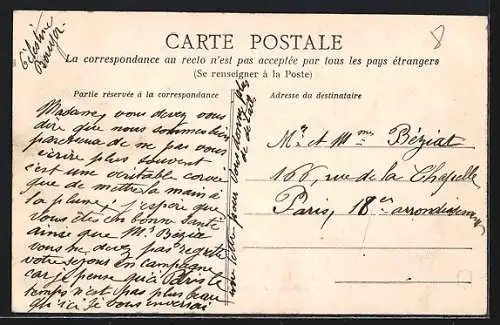 Célestine
CARTE POSTALE
La correspondance au recto n'est pas acceptée par tous les pays étrangers
(Se renseigner à la Poste)
Partie réservée à la correspondance
Adresse du destinataire
Madame, vous devez vous
dire que nous sommes bien
paresseux de ne pas vous
écrire plus souvent
c'est une véritable corvée
que de mettre la main à
la plume, j'espère que
Vous êtes en bonne Santé
ainsi que Mr Bézia
vous ne devez pas regretté
votre séjour en campagne
car je pense qu'à Paris le
temps n'est pas plus beau
qu'ici
Mr et Mme Béziat
166, rue de la Chapelle
Paris, 18e arrondissement